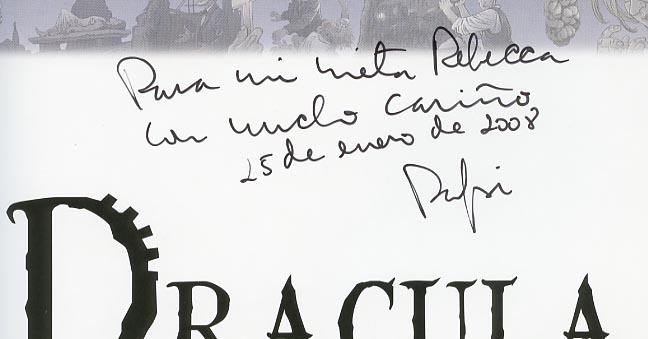 Para mi nieta Rebecca
con mucho cariño,
25 de enero de 2008
DRACULA